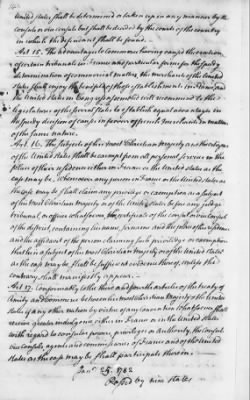 United States shall be determined or taken up in any manner by the
Consuls or vice consuls but shall be decided by the courts of the country
in which the defendant shall be found.
Art. 15. The advantages to commerce having caused the erection
of certain tribunals in France and particular forms for the speedy
determination of commercial matters, the merchants of the United
States shall enjoy the benefit of these establishments in France, and
the United States in Congress assembled will recommend to the
legislatures of the several states to establish equal advantages in
the speedy decision of causes in favour of french merchants in matters
of the same nature.
Art. 16. The subjects of his most Christian Majesty and the citizens
of the United States shall be exempt from all personal service in the
place of their residence either in France or the United States as the
case may be. Whenever any person in France or the United States as
the case may be shall claim any privilege or exemption as a subject
of his most Christian Majesty or of the United States before any judge
tribunal or officer whatsoever, the certificate of the consul or vice consul
of the district, containing his name, surname and the place of his residence
and the affidavit of the person claiming such privilege or exemption
that he is a subject of his most Christian Majesty or of the united states
as the case may be shall be sufficient evidence thereof, unless the
contrary shall manifestly appear.
Art. 17. Conformably to the third and fourth articles of the treaty of
Amity and Commerce between his most Christian Majesty & the United
States if any other nation by virtue of any convention whatsoever shall
receive greater indulgence either in France or in the United States
with regard to consular powers, privileges or authority, the Consuls
vice consuls agents and commissaries of France and of the United
States as the case may be, shall participate therein.
Jany. 25, 1782
Passed by nine States